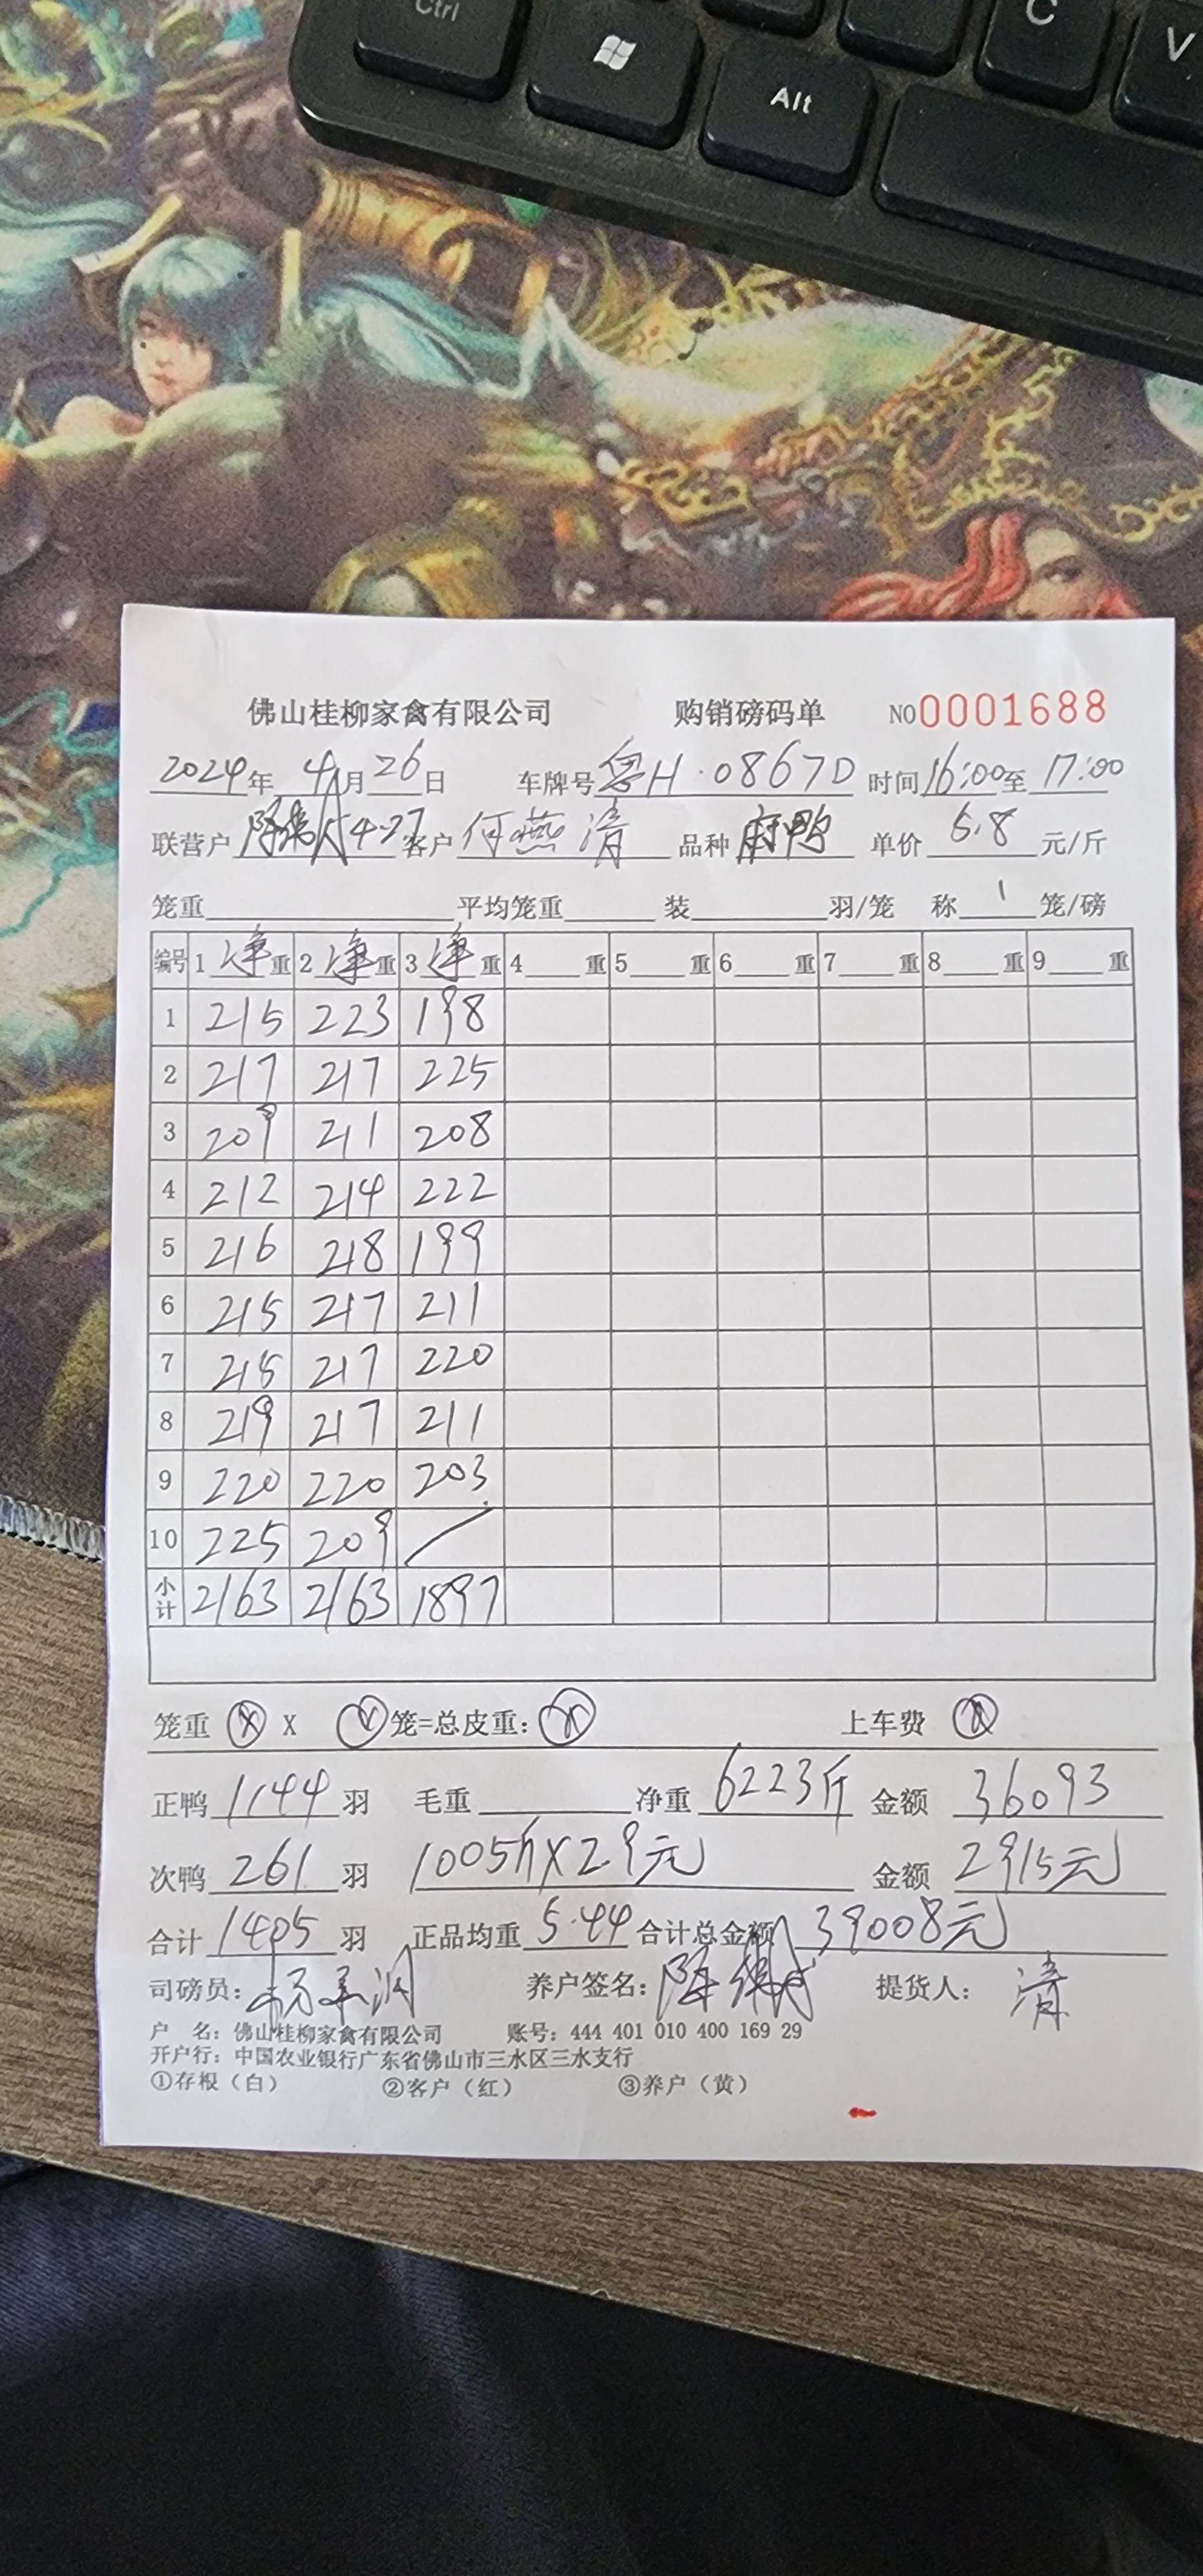 Ctrl
Alt
C
V
佛山桂柳家禽有限公司 购销磅码单 NO0001688
2024年 4月26日 车牌号 粤H·0867D 时间16:00至17:00
联营户 4-27 客户 何燕清 品种 麻鸭 单价 5.8 元/斤
笼重 平均笼重 装 羽/笼 称 1 笼/磅
编号 1 净 重 2 净 重 3 净 重 4 重 5 重 6 重 7 重 8 重 9 重
1 215 223 198
2 217 217 225
3 209 211 208
4 212 214 222
5 216 218 199
6 215 217 211
7 215 217 220
8 219 217 211
9 220 220 203
10 225 209
小计 2163 2163 1897
笼重 X 笼=总皮重: 上车费
正鸭 1144 羽 毛重 净重 6223斤 金额 36093
次鸭 261 羽 1005斤X2.9元 金额 2915元
合计 1405 羽 正品均重 5.44 合计总金额 39008元
司磅员: 养户签名: 陈 提货人: 清
户 名: 佛山桂柳家禽有限公司 账号: 444 401 010 400 169 29
开户行: 中国农业银行广东省佛山市三水区三水支行
①存根(白) ②客户(红) ③养户(黄)